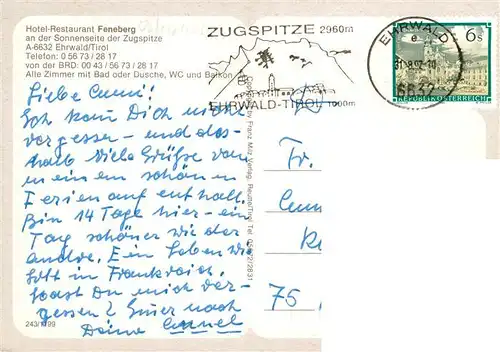 Hotel-Restaurant Feneberg
an der Sonnenseite der Zugspitze
A-6632 Ehrwald/Tirol
Telefon: 0 56 73 / 28 17
von der BRD: 00 43 / 56 73 / 28 17
Alle Zimmer mit Bad oder Dusche, WC und Balkon
ZUGSPITZE 2960m
EHRWALD-TIROL 1000m
EHRWALD
6632
6s
REPUBLIK ÖSTERREICH
Liebe
Ich kann Dich nicht
vergessen - und des-
halb viele Grüße von
meinem schönen
Ferienaufenthalt.
Bin 14 Tage hier - ein
Tag schöner wie der
andre. Ein Leben wie
Gott in Frankreich.
Hast Du mich ver-
gessen?
Deine
Fr.
75
by Franz Milz Verlag, Reutte/Tirol Tel. 05672/2831
243/1199